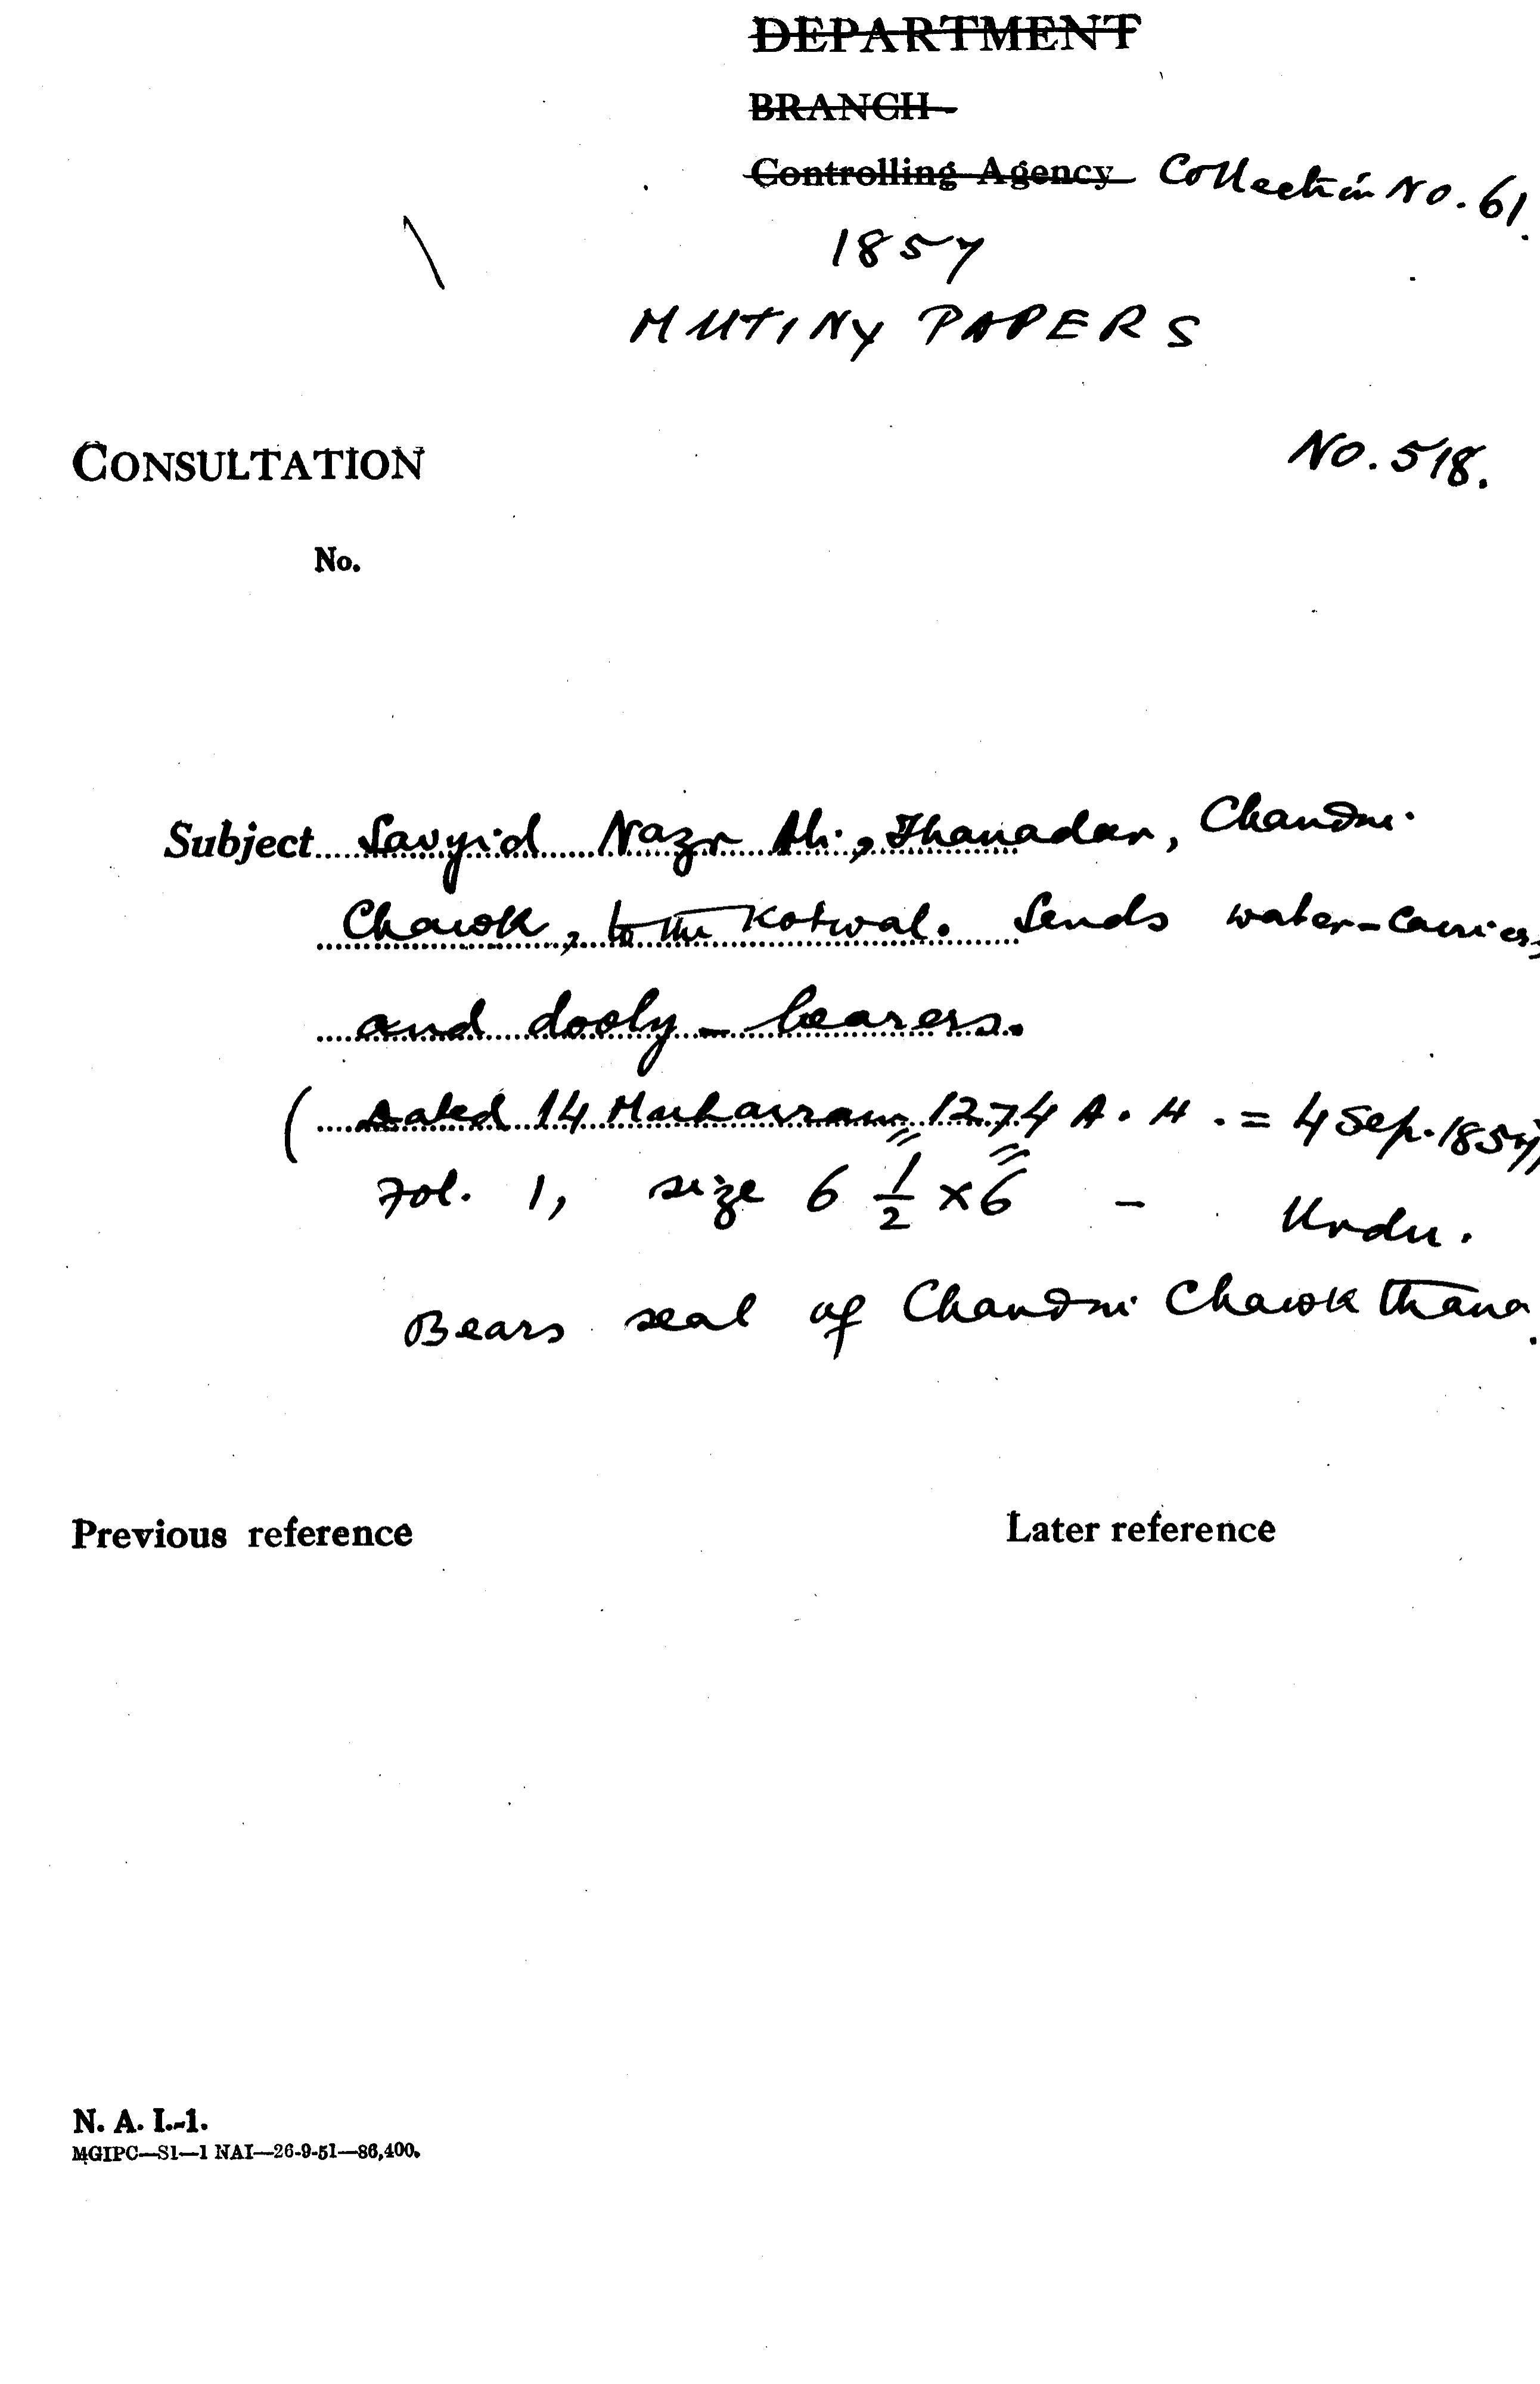 DEPARTMENT
BRANCH
Controlling Agency Collection No. 61.
1857
MUTINY PAPERS
CONSULTATION No. 518.
No.
Subject Sayyid Nazr Ali, Thanadar, Chandni
Chawk, to the Kotwal. Sends water-carriers
and dooly-bearers.
(Dated 14 Muharram 1274 A.H. = 4 Sep. 1857)
Fol. 1, size 6 1/2" x 6" - Urdu.
Bears seal of Chandni Chawk thana.
Previous reference Later reference
N. A. I.-1.
MGIPC—S1—1 NAI—26-9-51—86,400.